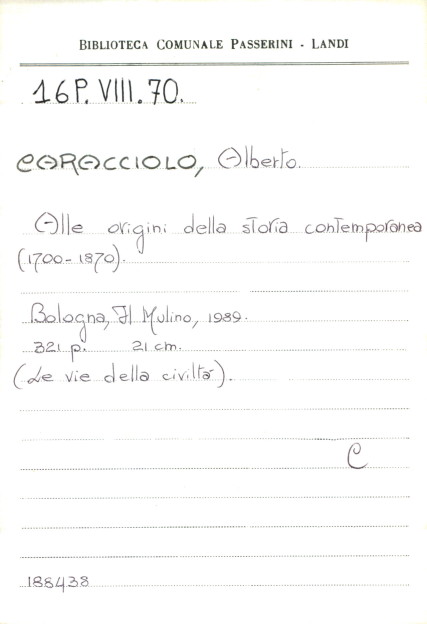 BIBLIOTECA COMUNALE PASSERINI - LANDI
16P. VIII. 70.
CARACCIOLO, Alberto.
Alle origini della storia contemporanea
(1700-1870).
Bologna, Il Mulino, 1989.
321 p. 21 cm.
(Le vie della civiltà).
C
188438